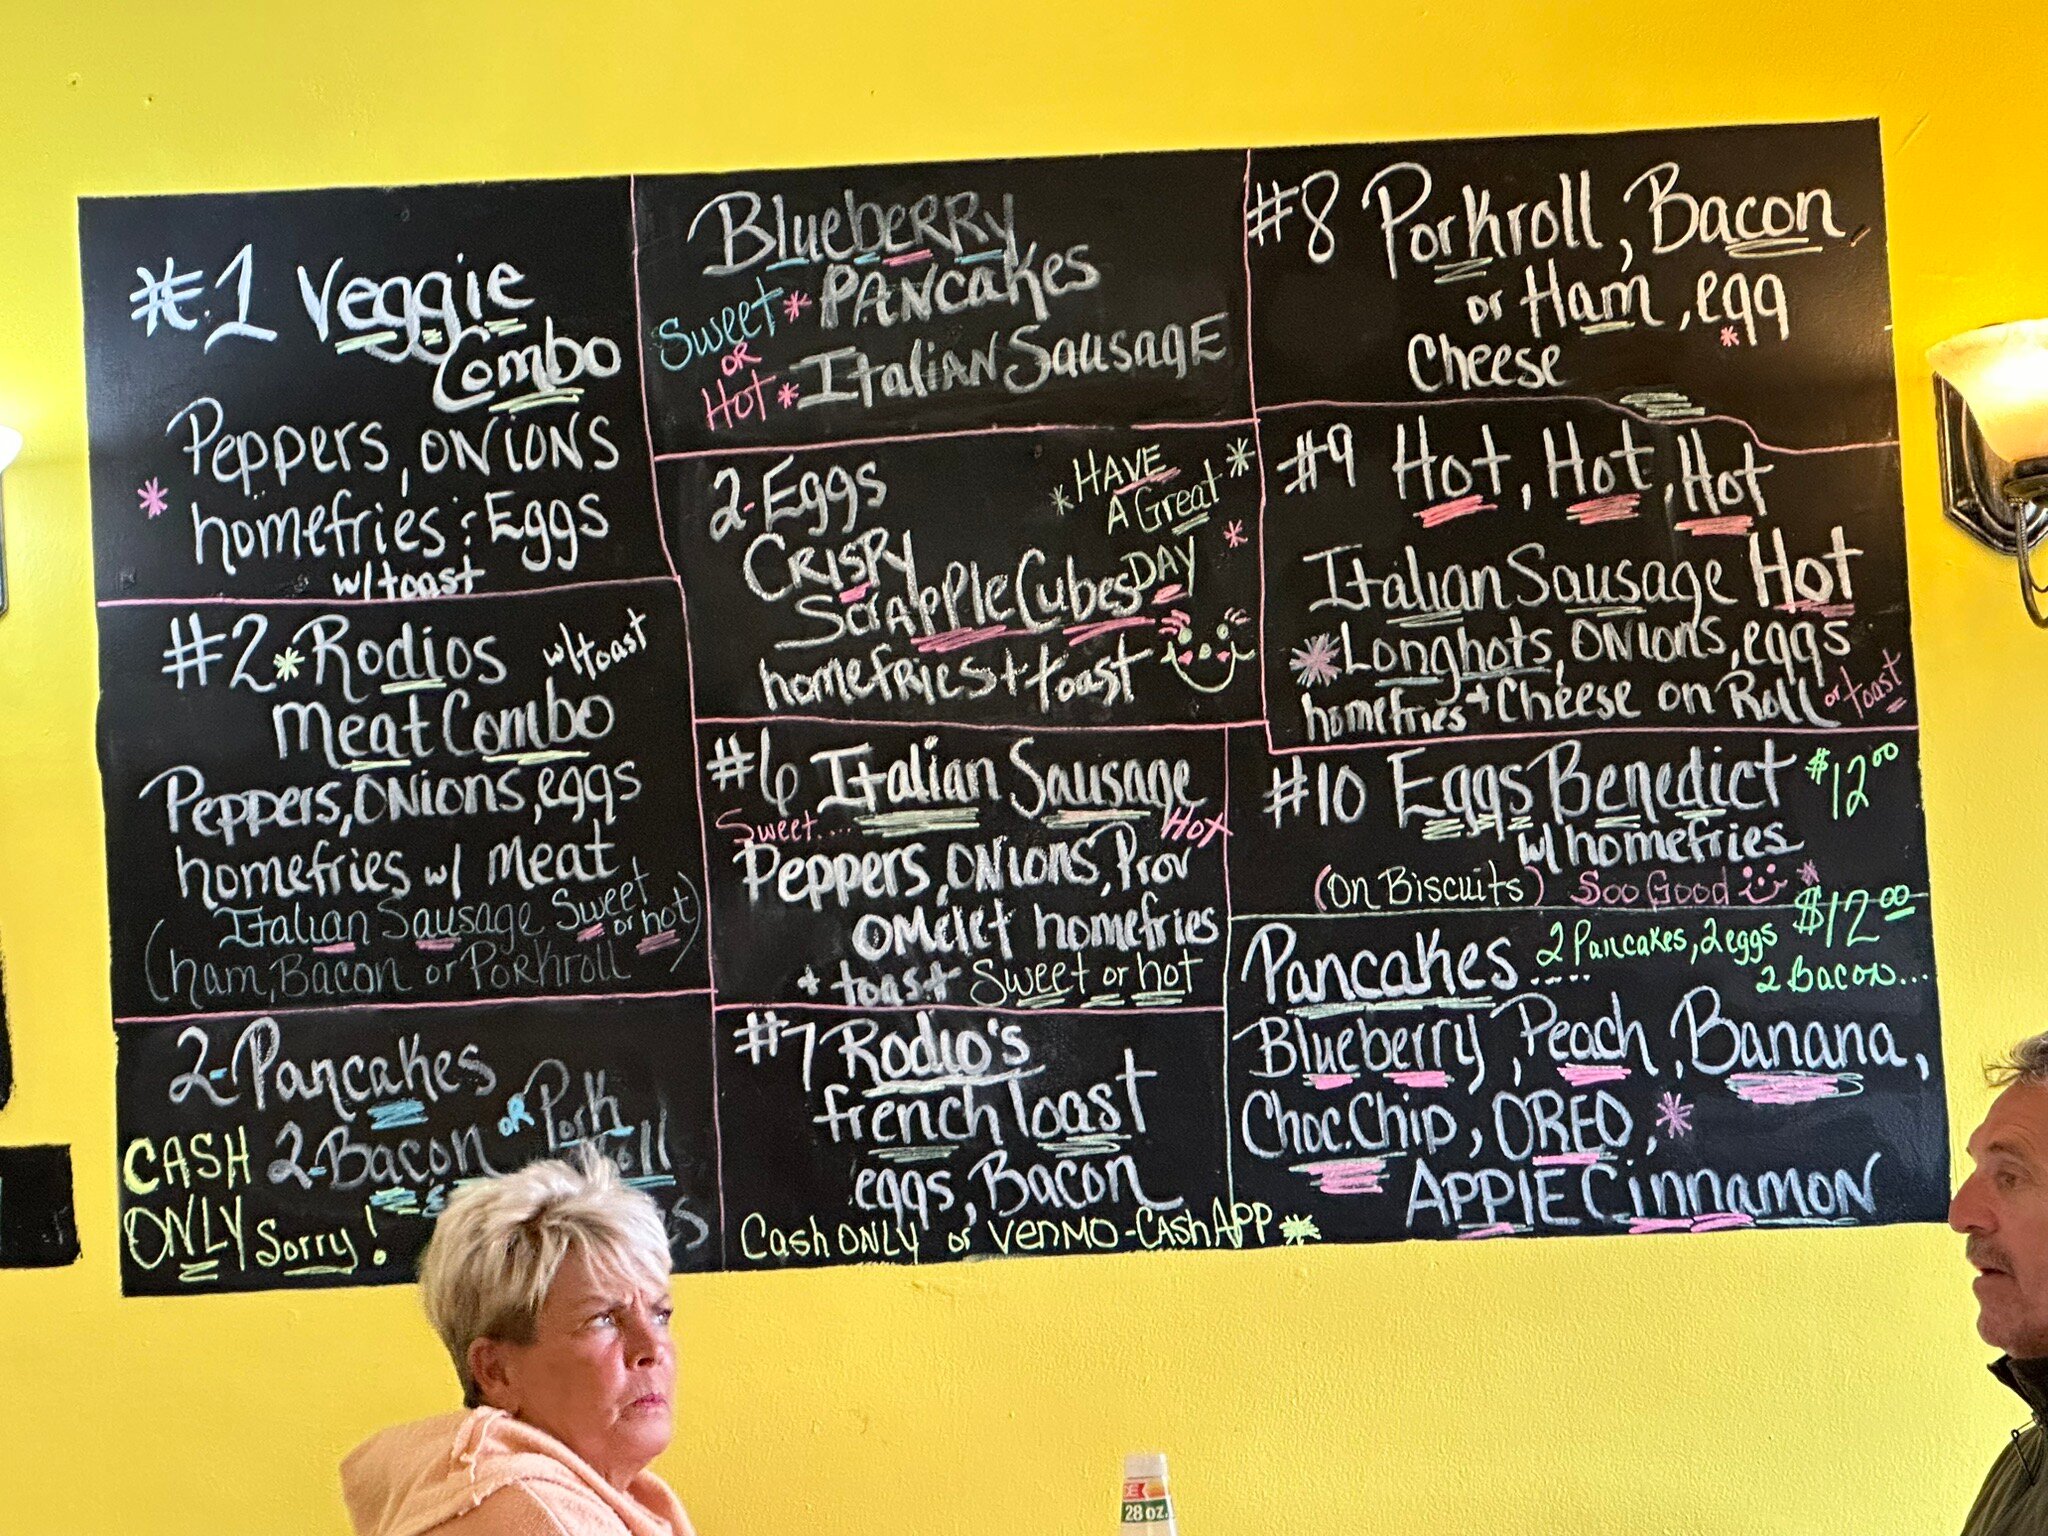 #1 Veggie
Combo
Peppers, ONIONS
* homefries : Eggs
w/toast
#2 * Rodios w/toast
Meat Combo
Peppers, ONions, eggs
homefries w/ meat
(Italian Sausage Sweet or hot)
(ham, Bacon or Porkroll)
2-Pancakes
2-Bacon OR Pork
Roll
CASH
ONLY Sorry!
Blueberry
Sweet * PANcakes
OR
Hot * Italian Sausage
2-Eggs
Crispy
Scrapple Cubes
homefries + toast
* HAVE *
A Great *
DAY
#6 Italian Sausage
Sweet.... Hot
Peppers, ONIONS, Prov
OMelet homefries
+ toast Sweet or hot
#7 Rodio's
french Toast
eggs, Bacon
Cash ONLY or VENMO-Cash APP *
#8 Porkroll, Bacon
or Ham, egg
* Cheese
#9 Hot, Hot, Hot
Italian Sausage Hot
* Longhots, ONIONS, eggs
homefries + Cheese on Roll or toast
#10 Eggs Benedict $12.00
w/ homefries
(on Biscuits) Soo Good *
Pancakes..... 2 Pancakes, 2 eggs $12.00
2 Bacon...
Blueberry, Peach, Banana,
Choc. Chip, OREO, *
APPlE Cinnamon
28 oz.